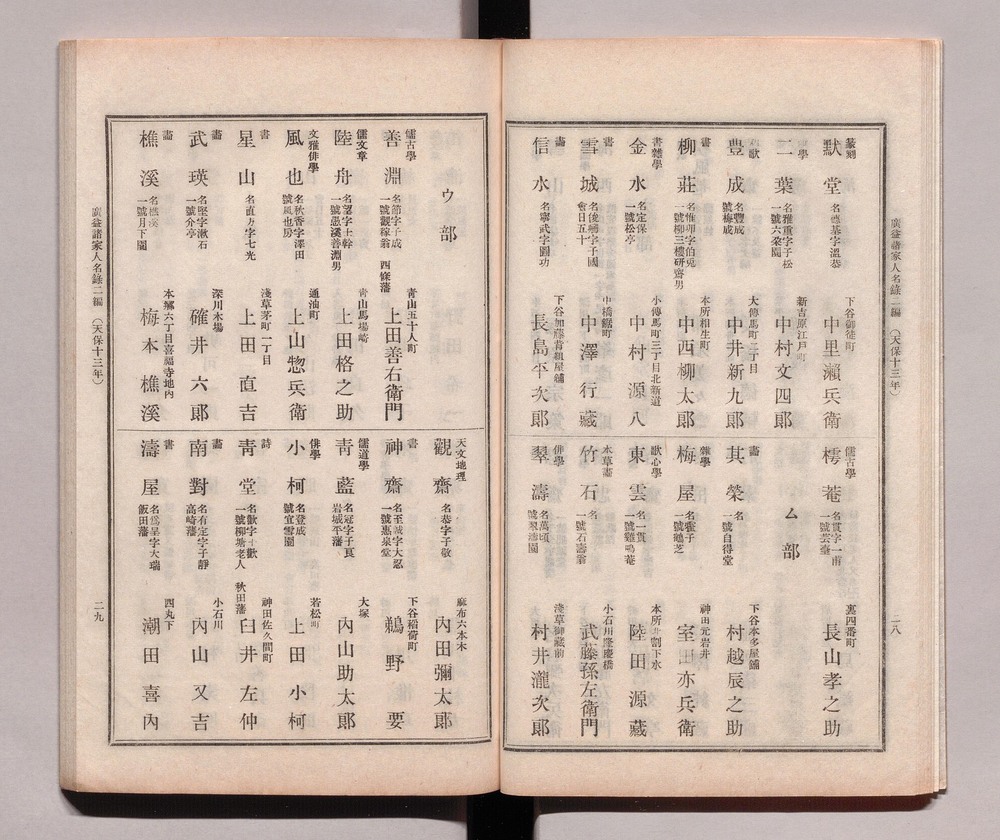 廣益諸家人名錄二編 (天保十三年)
二八
篆刻
默堂 名德基字溫恭
下谷御徒町
中里瀨兵衛
二葉 名雅重字子松 一號六朶園
新吉原江戸町
中村文四郎
豊成 名豐成 一號梅成
大傳馬町二丁目
中井新九郎
書
柳莊 名惟卯字伯兎 一號柳三樓研齋男
本所相生町
中西柳太郎
書雜學
金水 名定保 一號松亭
小傳馬町三丁目北新道
中村源八
書
雪城 名俊卿字子國 會日五十
中橋鍛町
中澤行藏
畵
信水 名寧武字固功
下谷加藤肯組屋鋪
長島平次郎
儒古學
樗菴 名貫字一甫 一號芸臺
裏四番町
長山孝之助
ム部
畵
其榮 名 一號自得堂
下谷本多屋鋪
村越辰之助
雜學
梅屋 名鶴子 一號鶴芝
神田元岩井
室田亦兵衛
歌心學
東雲 名一貫 一號雞鳴菴
本所割下水
陸田源藏
本草畵
竹石 名 一號石壽翁
小石川隆慶橋
武藤孫左衛門
俳學
翠濤 名萬頃 號翠濤園
淺草御藏前
村井瀧次郎
ウ部
儒古學
善淵 名節字子成 一號觀稼翁 西條藩
青山五十人町
上田善右衛門
儒文章
陸舟 名望字士幹 一號愚溪善淵男
青山馬場崎
上田格之助
文雅俳學
風也 名秋香字澤田 一號風也房
通油町
上山惣兵衛
書
星山 名直乃字七光
淺草茅町一丁目
上田直吉
畵
武瑛 名堅字漱石 一號介亭
深川木場
碓井六郎
畵
樵溪 名樵溪 一號月下園
本鄕六丁目喜福寺地內
梅本樵溪
天文地理
觀齋 名恭字子敬
麻布六本木
內田彌太郎
書
神齋 名至誠字大忍 一號惠泉堂
下谷稻荷町
鵜野要
儒道學
青藍 名冠字子頁 岩城平藩
大塚
內山助太郎
俳學
小柯 名登成 一號宜雪園
若松町
上田小柯
詩
青堂 名歡字士歡 一號柳塘老人 秋田藩
神田佐久間町
臼井左仲
畵
南對 名有定字子靜 高崎藩
小石川
內山又吉
書
濤屋 名爲呈字大瑞 飯田藩
四丸下
潮田喜內
廣益諸家人名錄二編 (天保十三年)
二九